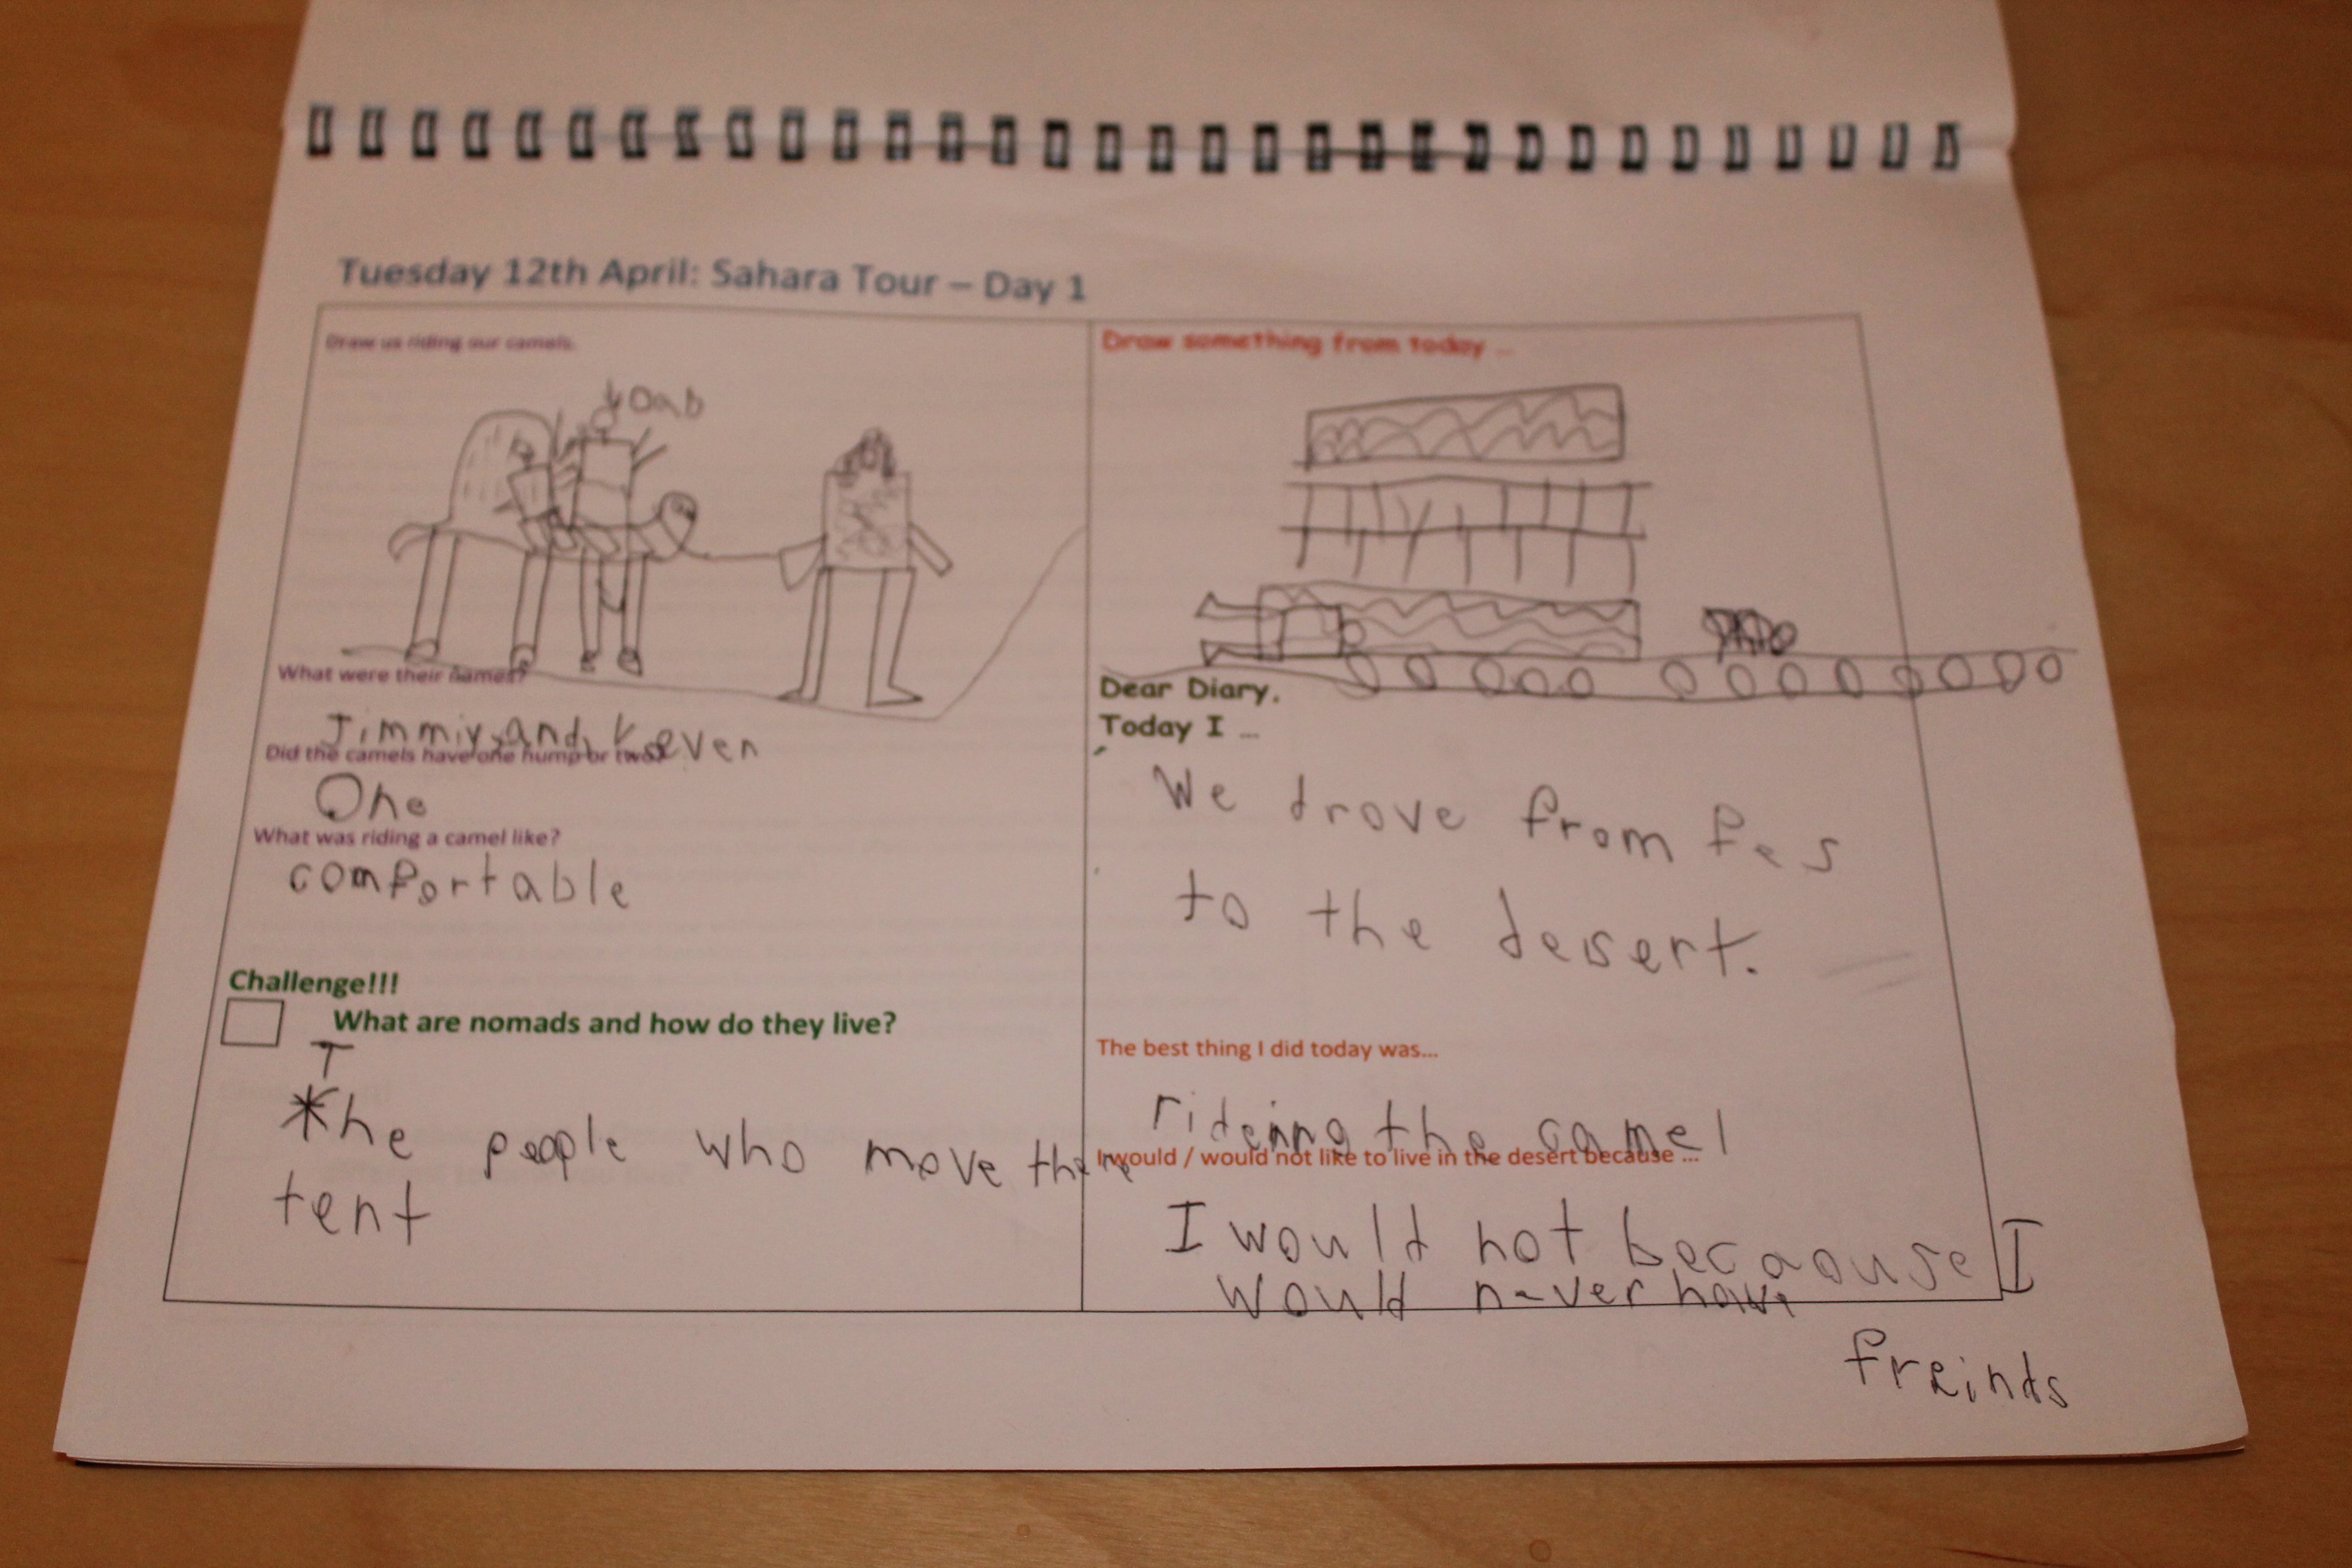 Tuesday 12th April: Sahara Tour – Day 1
Draw us riding our camels.
yoab
What were their names?
Jimmiy and Keven
Did the camels have one hump or two?
One
What was riding a camel like?
comfortable
Challenge!!!
What are nomads and how do they live?
The people who move there
tent
Draw something from today ...
Dear Diary.
Today I ...
We drove from fes
to the desert.
The best thing I did today was...
ridenng the camel
I would / would not like to live in the desert because ...
I would not becaouse I
would never have
freinds